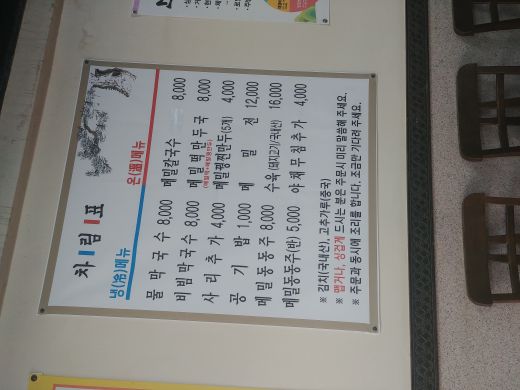 차 림 표
냉(冷)메뉴
물 막 국 수 8,000
비 빔 막 국 수 8,000
사 리 추 가 4,000
공 기 밥 1,000
메 밀 동 동 주 8,000
메밀동동주(반) 5,000
온(溫)메뉴
메밀칼국수 8,000
메 밀 떡 만 두 국 8,000
메밀꿩찐만두(5개) 4,000
메 밀 전 12,000
수육(돼지고기/국내산) 16,000
야 채 무 침 추 가 4,000
※ 김치(국내산), 고추가루(중국)
※ 맵거나, 싱겁게 드시는 분은 주문시 미리 말씀해 주세요.
※ 주문과 동시에 조리를 합니다. 조금만 기다려 주세요.